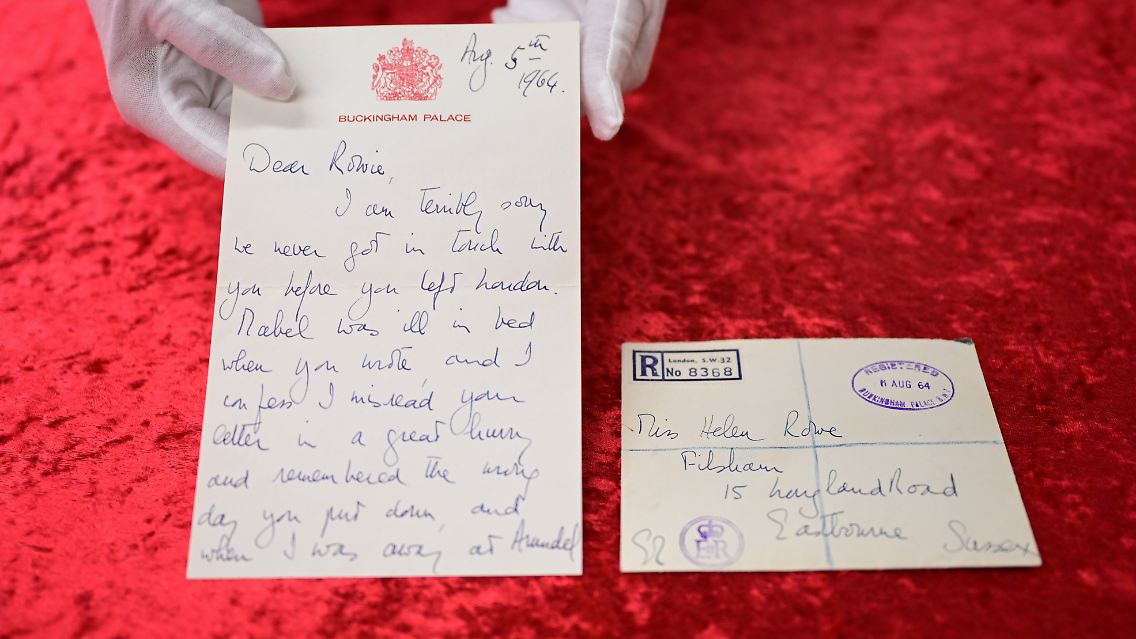 Aug. 5th
1964.
BUCKINGHAM PALACE
Dear Rowie,
I am terribly sorry
we never got in touch with
you before you left London.
Mabel was ill in bed
when you wrote, and I
confess I misread your
letter in a great hurry
and remembered the wrong
day you put down, and
when I was away at Arundel
R
London, S.W.32
No 8368
REGISTERED
AUG 64
BUCKINGHAM PALACE
Miss Helen Rowe
Filsham
15 Longland Road
Eastbourne Sussex
ER
EIIR